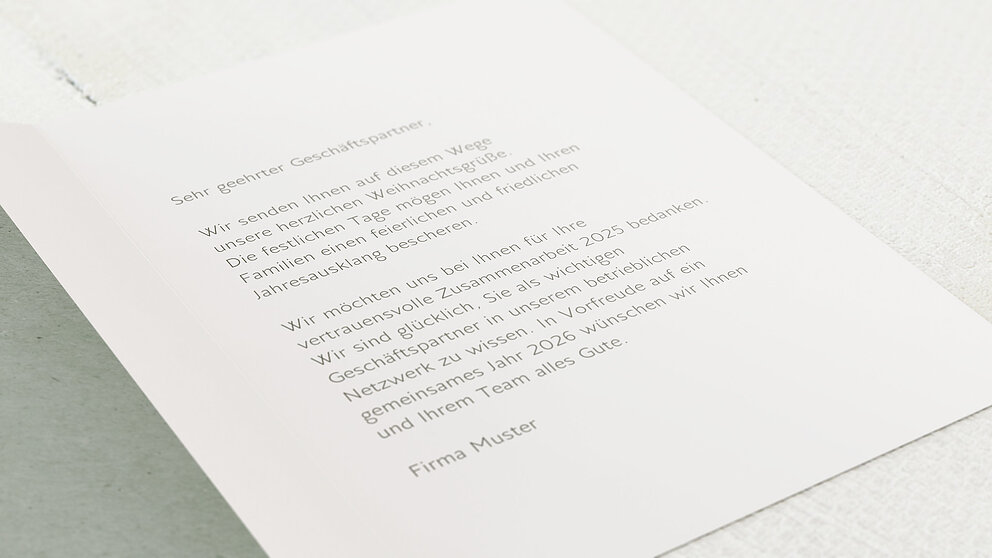 Sehr geehrter Geschäftspartner,
Wir senden Ihnen auf diesem Wege
unsere herzlichen Weihnachtsgrüße.
Die festlichen Tage mögen Ihnen und Ihren
Familien einen feierlichen und friedlichen
Jahresausklang bescheren.
Wir möchten uns bei Ihnen für Ihre
vertrauensvolle Zusammenarbeit 2025 bedanken.
Wir sind glücklich, Sie als wichtigen
Geschäftspartner in unserem betrieblichen
Netzwerk zu wissen. In Vorfreude auf ein
gemeinsames Jahr 2026 wünschen wir Ihnen
und Ihrem Team alles Gute.
Firma Muster